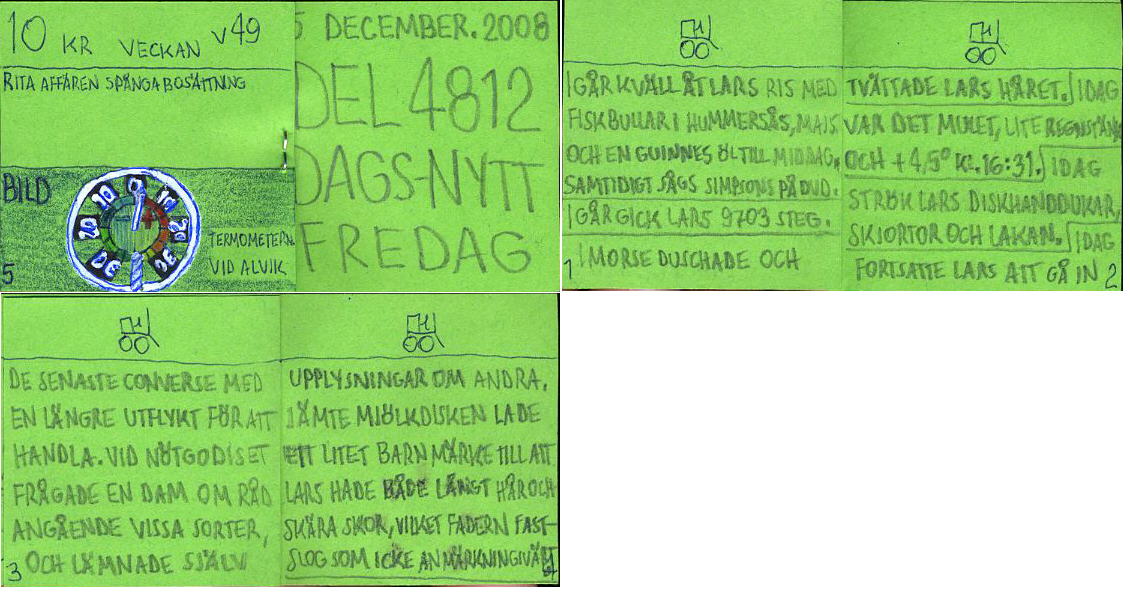 10 KR VECKAN V49
RITA AFFÄREN SPÅNGA BOSÄTTNING
BILD
0
10
10
20
20
30
30
TERMOMETERN
VID ALVIK
5
5 DECEMBER. 2008
DEL 4812
DAGS-NYTT
FREDAG
I GÅR KVÄLL ÅT LARS RIS MED
FISKBULLAR I HUMMERSÅS, MAJS
OCH EN GUINNES ÖL TILL MIDDAG,
SAMTIDIGT SÅGS SIMPSONS PÅ DVD.
I GÅR GICK LARS 9703 STEG.
I MORSE DUSCHADE OCH
1
TVÄTTADE LARS HÅRET. IDAG
VAR DET MULET, LITE REGNSTÄNK
OCH +4,5° KL. 16:31. IDAG
STRÖK LARS DISKHANDDUKAR,
SKJORTOR OCH LAKAN. IDAG
FORTSATTE LARS ATT GÅ IN
2
DE SENASTE CONVERSE MED
EN LÄNGRE UTFLYKT FÖR ATT
HANDLA. VID NÖTGODISET
FRÅGADE EN DAM OM RÅD
ANGÅENDE VISSA SORTER,
OCH LÄMNADE SJÄLV
3
UPPLYSNINGAR OM ANDRA.
JÄMTE MJÖLKDISKEN LADE
ETT LITET BARN MÄRKE TILL ATT
LARS HADE BÅDE LÅNGT HÅR OCH
SKÄRA SKOR, VILKET FADERN FAST-
SLOG SOM ICKE ANMÄRKNINGSVÄRT